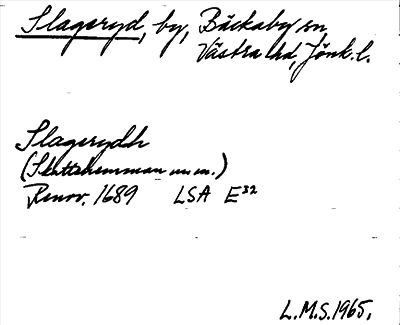 Slageryd, by, Bäckaby sn
Västra hd, Jönk. l.
Slagerydh
(Skattehemman m.m.)
Renov. 1689 LSA E³²
L.M.S. 1965.